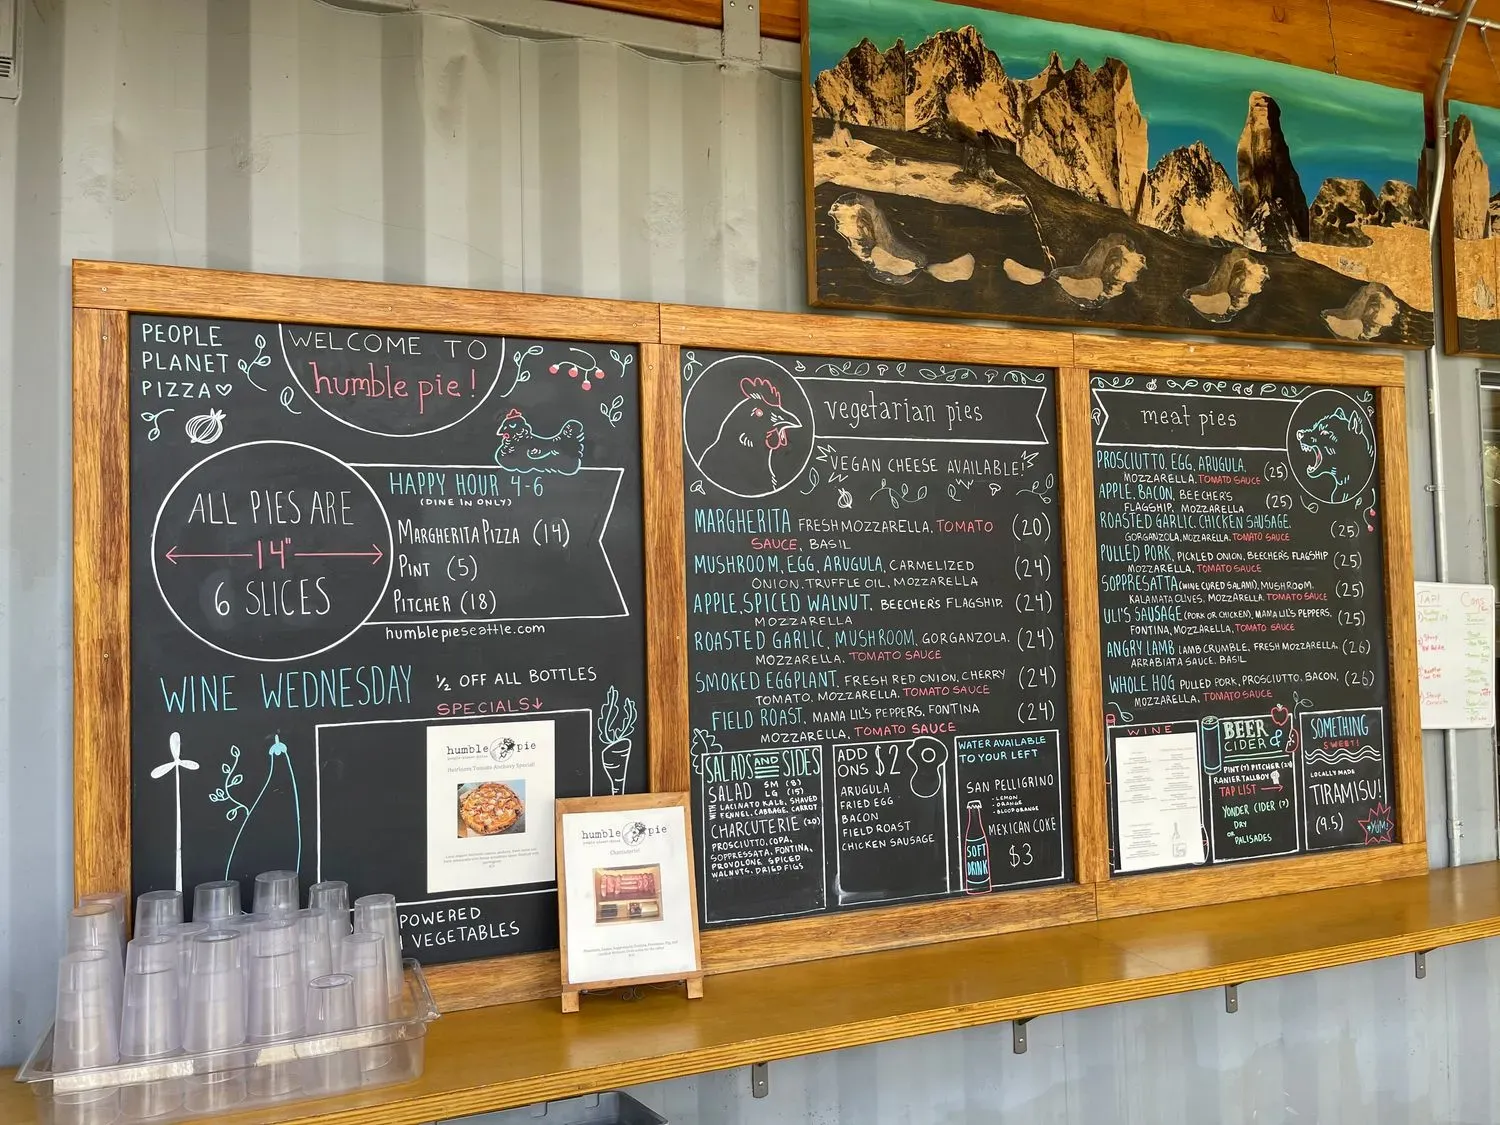 PEOPLE
PLANET
PIZZA♡
WELCOME TO
humble pie!
ALL PIES ARE
14"
6 SLICES
HAPPY HOUR 4-6
(DINE IN ONLY)
MARGHERITA PIZZA (14)
PINT (5)
PITCHER (18)
humblepieseattle.com
WINE WEDNESDAY ½ OFF ALL BOTTLES
SPECIALS↓
humble pie
Heirloom Tomato Anchovy Special!
POWERED
VEGETABLES
humble pie
Charcuterie!
vegetarian pies
VEGAN CHEESE AVAILABLE!
MARGHERITA FRESH MOZZARELLA, TOMATO (20)
SAUCE, BASIL
MUSHROOM, EGG, ARUGULA, CARMELIZED (24)
ONION, TRUFFLE OIL, MOZZARELLA
APPLE, SPICED WALNUT, BEECHER'S FLAGSHIP, (24)
MOZZARELLA
ROASTED GARLIC, MUSHROOM, GORGANZOLA, (24)
MOZZARELLA, TOMATO SAUCE
SMOKED EGGPLANT, FRESH RED ONION, CHERRY (24)
TOMATO, MOZZARELLA, TOMATO SAUCE
FIELD ROAST, MAMA LIL'S PEPPERS, FONTINA (24)
MOZZARELLA, TOMATO SAUCE
SALADS AND SIDES
SALAD SM (8)
LG (15)
WITH LACINATO KALE, SHAVED
FENNEL, CABBAGE, CARROT
CHARCUTERIE (20)
PROSCIUTTO, COPA,
SOPPRESSATA, FONTINA,
PROVOLONE, SPICED
WALNUTS, DRIED FIGS
ADD
ONS $2
ARUGULA
FRIED EGG
BACON
FIELD ROAST
CHICKEN SAUSAGE
WATER AVAILABLE
TO YOUR LEFT
SAN PELLIGRINO
- LEMON
- ORANGE
- BLOOD ORANGE
MEXICAN COKE
$3
SOFT
DRINK
meat pies
PROSCIUTTO, EGG, ARUGULA, (25)
MOZZARELLA, TOMATO SAUCE
APPLE, BACON, BEECHER'S (25)
FLAGSHIP, MOZZARELLA
ROASTED GARLIC, CHICKEN SAUSAGE, (25)
GORGANZOLA, MOZZARELLA, TOMATO SAUCE
PULLED PORK, PICKLED ONION, BEECHER'S FLAGSHIP (25)
MOZZARELLA, TOMATO SAUCE
SOPPRESATTA (WINE CURED SALAMI), MUSHROOM, (25)
KALAMATA OLIVES, MOZZARELLA, TOMATO SAUCE
ULI'S SAUSAGE (PORK OR CHICKEN), MAMA LIL'S PEPPERS, (25)
FONTINA, MOZZARELLA, TOMATO SAUCE
ANGRY LAMB LAMB CRUMBLE, FRESH MOZZARELLA, (26)
ARRABIATA SAUCE, BASIL
WHOLE HOG PULLED PORK, PROSCIUTTO, BACON, (26)
MOZZARELLA, TOMATO SAUCE
WINE
BEER
CIDER &
PINT (7) PITCHER (21)
RANIER TALLBOY
TAP LIST →
YONDER CIDER (7)
DRY
OR
PALISADES
SOMETHING
SWEET!
LOCALLY MADE
TIRAMISU!
(9.5)
YUM!
TAP!
Cans